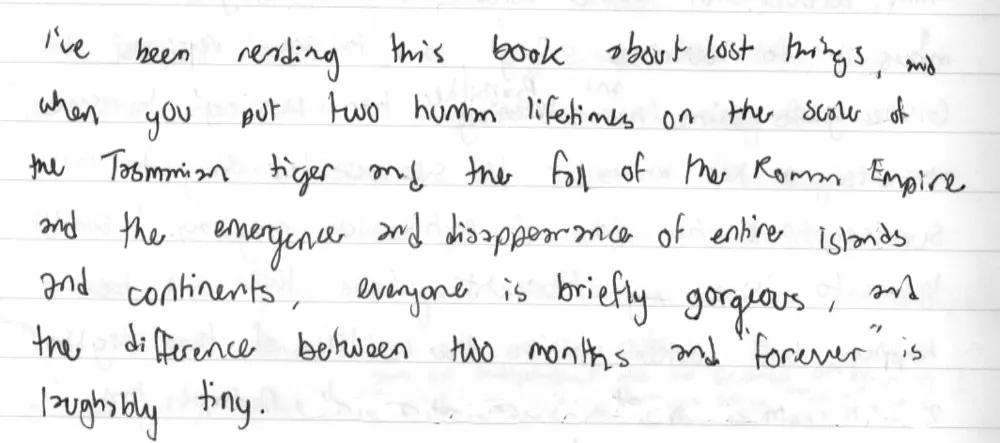 I've been reading this book about lost things, and
when you put two human lifetimes on the scale of
the Tasmanian tiger and the fall of the Roman Empire
and the emergence and disappearance of entire islands
and continents, everyone is briefly gorgeous, and
the difference between two months and "forever" is
laughably tiny.